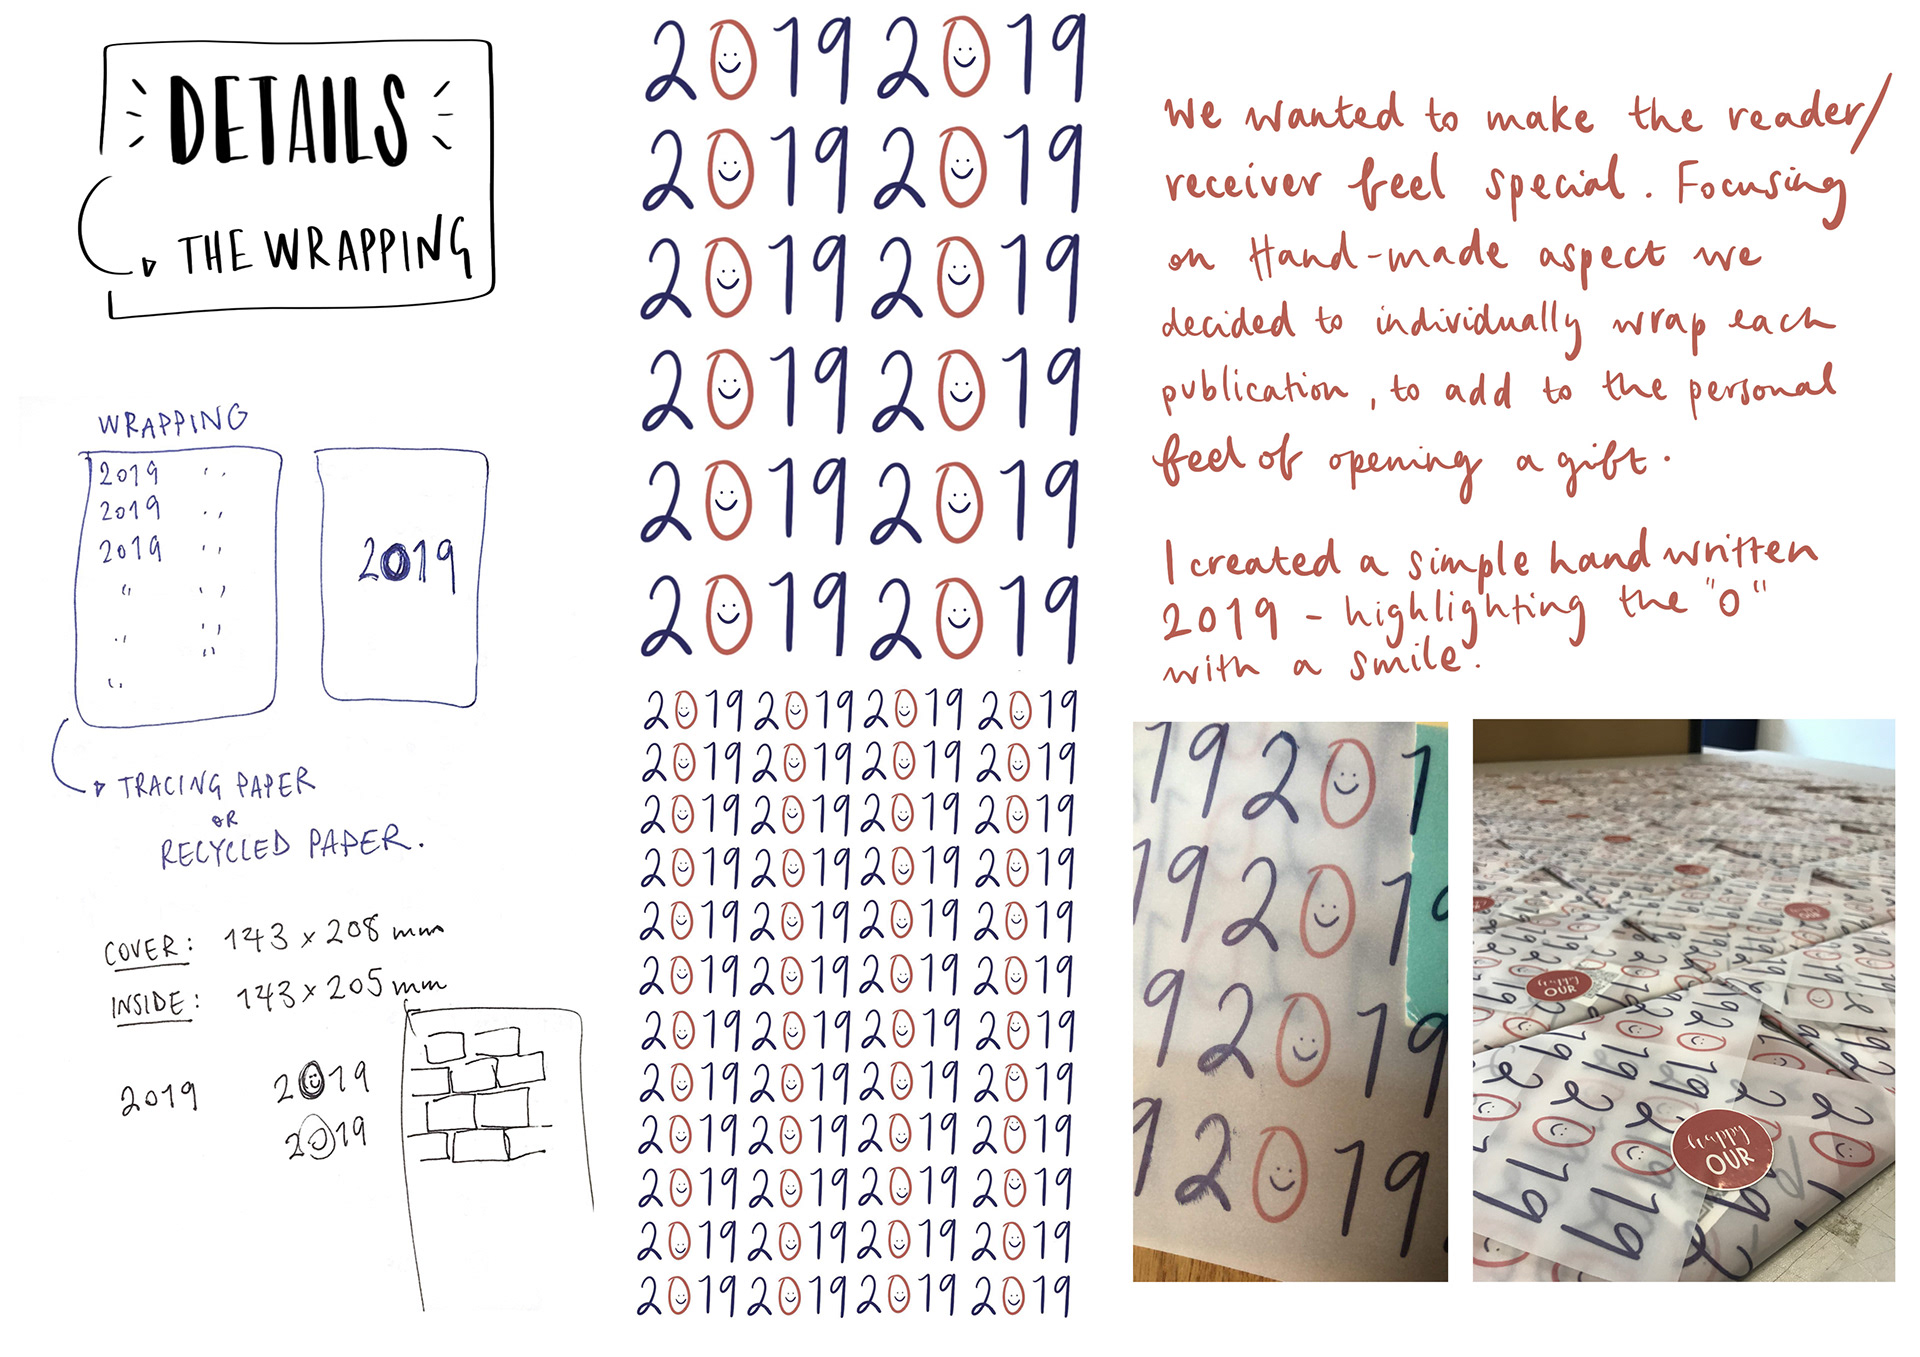 DETAILS
THE WRAPPING
WRAPPING
2019 ,,
2019 ,,
2019 ,,
,, ,,
,, ,,
,,
,,
2019
TRACING PAPER
OR
RECYCLED PAPER.
COVER: 143 x 208 mm
INSIDE: 143 x 205 mm
2019
2019
2019
2019 2019
2019 2019
2019 2019
2019 2019
2019 2019
2019 2019
2019 2019 2019 2019
2019 2019 2019 2019
2019 2019 2019 2019
2019 2019 2019 2019
2019 2019 2019 2019
2019 2019 2019 2019
2019 2019 2019 2019
2019 2019 2019 2019
2019 2019 2019 2019
2019 2019 2019 2019
2019 2019 2019 2019
2019 2019 2019 2019
We wanted to make the reader/
receiver feel special. Focusing
on Hand-made aspect we
decided to individually wrap each
publication, to add to the personal
feel of opening a gift.
I created a simple hand written
2019 - highlighting the "0"
with a smile.
19 201
19 2019
9 2019
9 2019
happy
OUR
happy
OUR